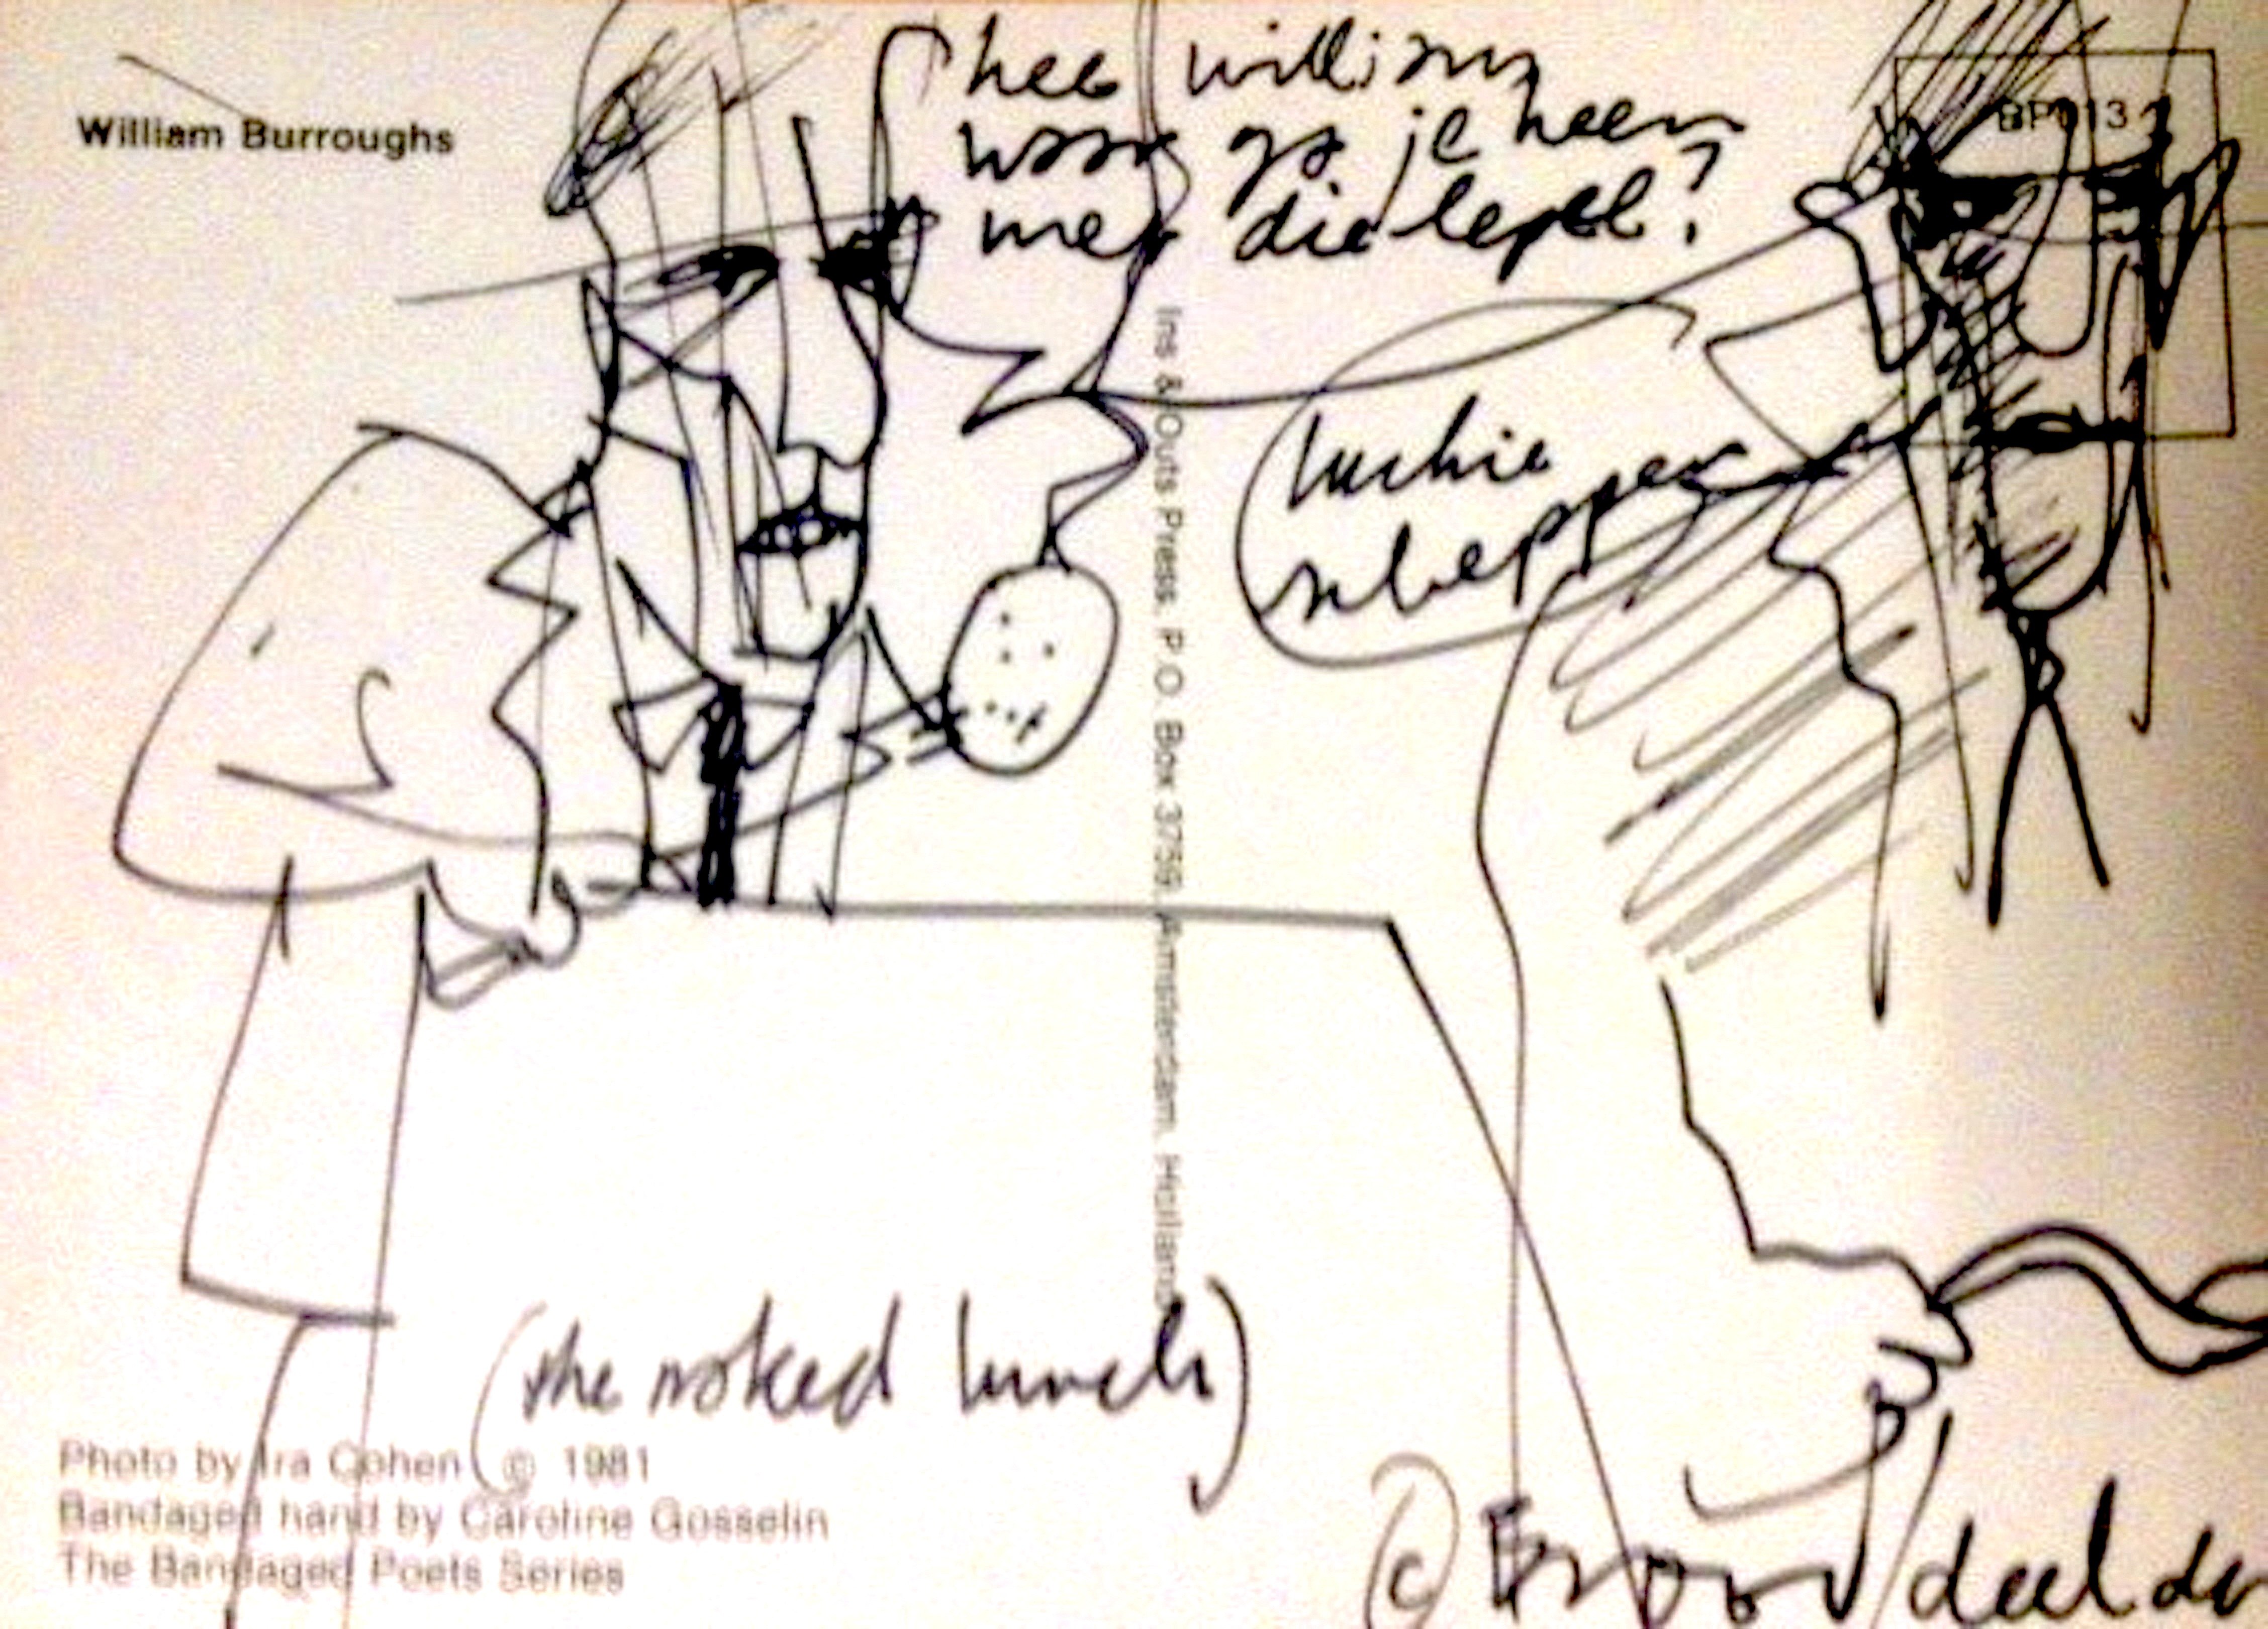 William Burroughs
hee william
waar ga je heen
met die lepel?
BP013
luchie
scheppen
Ins & Outs Press, P.O. Box 3759, Amsterdam, Holland
(the naked lunch)
Photo by Ira Cohen © 1981
Bandaged hand by Caroline Gosselin
The Bandaged Poets Series
© deelder